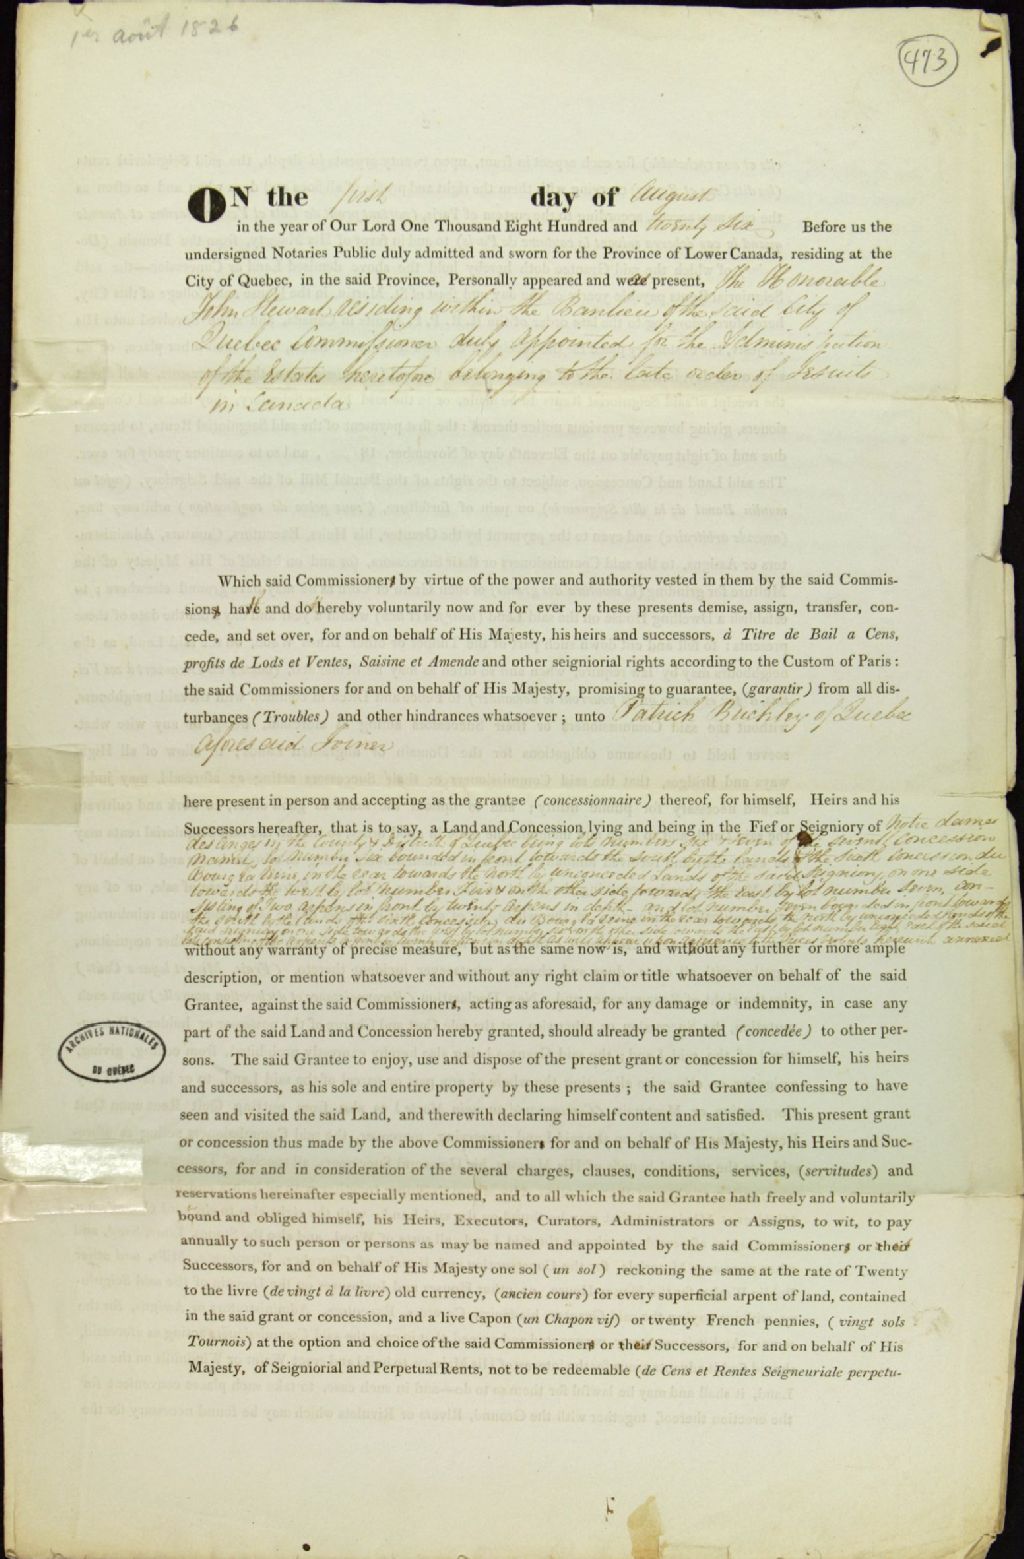 1er août 1826
473
ON the first day of August
in the year of Our Lord One Thousand Eight Hundred and twenty six Before us the
undersigned Notaries Public duly admitted and sworn for the Province of Lower Canada, residing at the
City of Quebec, in the said Province, Personally appeared and was present, The Honorable
John Stewart residing within the Banlieu of the said City of
Quebec Commissioner duly appointed for the Administration
of the Estates heretofore belonging to the late order of Jesuits
in Canada
Which said Commissioner by virtue of the power and authority vested in them by the said Commis-
sion, hath and doth hereby voluntarily now and for ever by these presents demise, assign, transfer, con-
cede, and set over, for and on behalf of His Majesty, his heirs and successors, à Titre de Bail a Cens,
profits de Lods et Ventes, Saisine et Amende and other seigniorial rights according to the Custom of Paris :
the said Commissioners for and on behalf of His Majesty, promising to guarantee, (garantir) from all dis-
turbances (Troubles) and other hindrances whatsoever ; unto Patrick Buckley of Quebec
aforesaid Joiner
here present in person and accepting as the grantee (concessionnaire) thereof, for himself, Heirs and his
Successors hereafter, that is to say, a Land and Concession lying and being in the Fief or Seigniory of Notre dame
des Anges in the County & District of Quebec being lots numbers Six & Seven of the Concession
named lot number six bounded in front towards the south by the lands of the sixth Concession du
Bourg la Reine, in the rear towards the north by unconceded lands of the said Seigniory, on one side
towards the west by lot number five & on the other side towards the east by lot number seven, con-
sisting of two arpens in front by twenty arpens in depth and lot number seven bounded in front towards
the south by the lands of the sixth Concession du Bourg la Reine in the rear towards the north by unconceded lands of the
said Seigniory on one side towards the west by lot number six on the other side towards the east by lot number eight
annexed
without any warranty of precise measure, but as the same now is, and without any further or more ample
description, or mention whatsoever and without any right claim or title whatsoever on behalf of the said
Grantee, against the said Commissioner, acting as aforesaid, for any damage or indemnity, in case any
part of the said Land and Concession hereby granted, should already be granted (concedée) to other per-
sons. The said Grantee to enjoy, use and dispose of the present grant or concession for himself, his heirs
and successors, as his sole and entire property by these presents ; the said Grantee confessing to have
seen and visited the said Land, and therewith declaring himself content and satisfied. This present grant
or concession thus made by the above Commissioner for and on behalf of His Majesty, his Heirs and Suc-
cessors, for and in consideration of the several charges, clauses, conditions, services, (servitudes) and
reservations hereinafter especially mentioned, and to all which the said Grantee hath freely and voluntarily
bound and obliged himself, his Heirs, Executors, Curators, Administrators or Assigns, to wit, to pay
annually to such person or persons as may be named and appointed by the said Commissioner or his
Successors, for and on behalf of His Majesty one sol (un sol) reckoning the same at the rate of Twenty
to the livre (de vingt à la livre) old currency, (ancien cours) for every superficial arpent of land, contained
in the said grant or concession, and a live Capon (un Chapon vif) or twenty French pennies, ( vingt sols
Tournois) at the option and choice of the said Commissioner or his Successors, for and on behalf of His
Majesty, of Seigniorial and Perpetual Rents, not to be redeemable (de Cens et Rentes Seigneuriale perpetu-
ARCHIVES NATIONALES
DU QUÉBEC